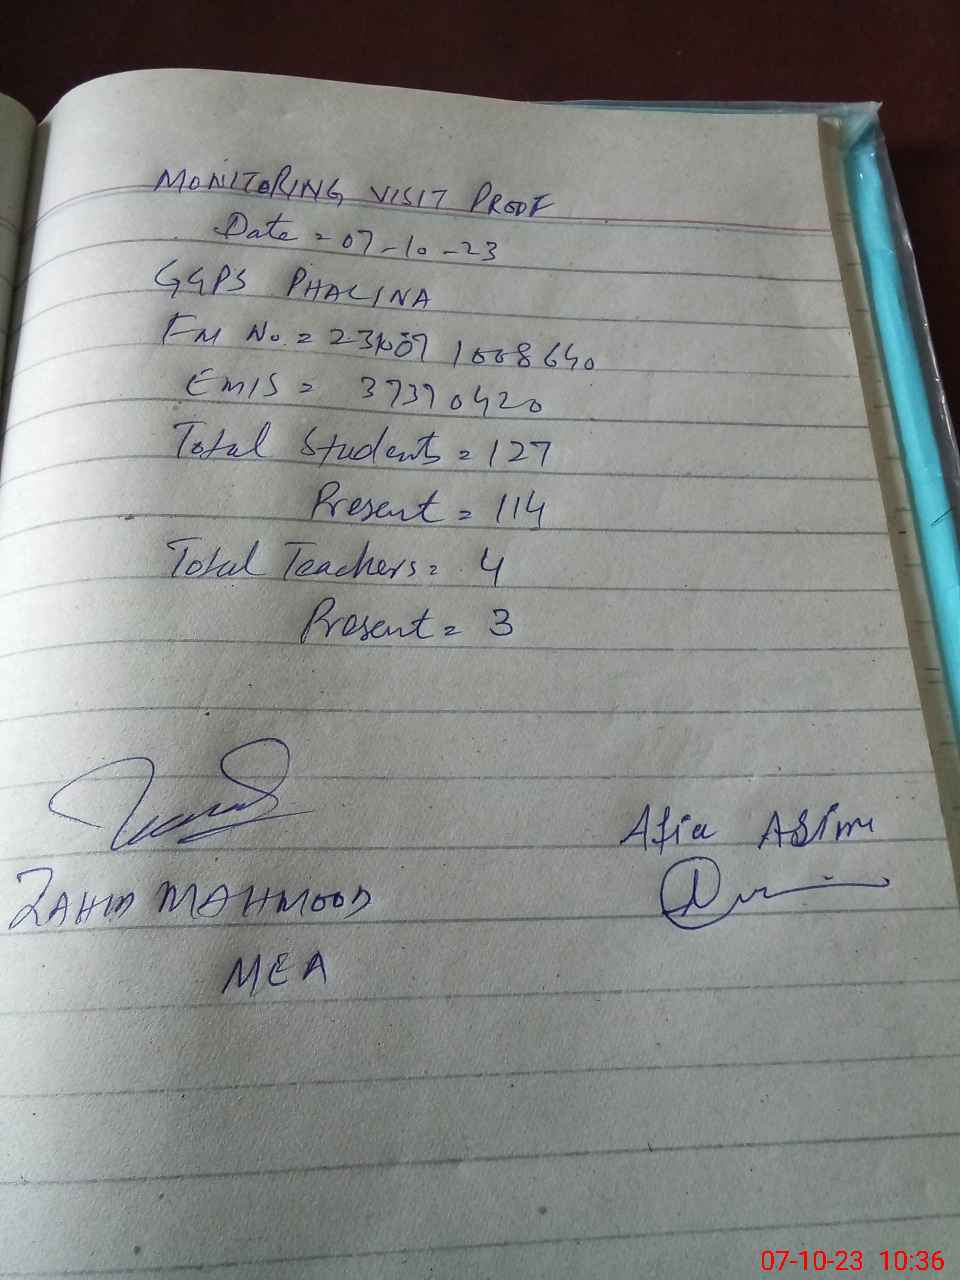 MONITORING VISIT PROOF
Date = 07-10-23
GGPS PHALINA
FM No. = 231007 1008640
EMIS = 37370420
Total Students = 127
Present = 114
Total Teachers = 4
Present = 3
Afia Asim
ZAHID MAHMOOD
MEA
07-10-23 10:36